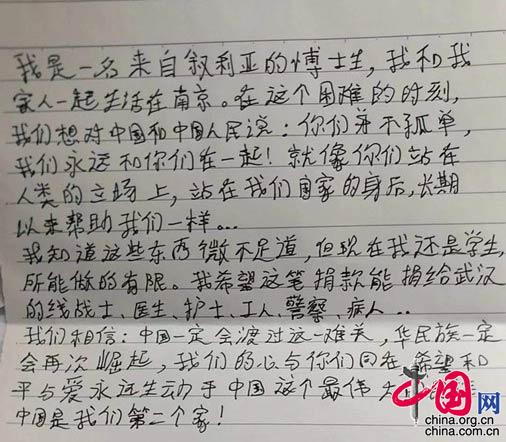 我是一名来自叙利亚的博士生，我和我
家人一起生活在南京。在这个困难的时刻，
我们想对中国和中国人民说：你们并不孤单，
我们永远和你们在一起！就像你们站在
人类的立场上，站在我们国家的身后，长期
以来帮助我们一样...
我知道这些东西微不足道，但现在我还是学生，
所能做的有限。我希望这笔捐款能捐给武汉
的线战士、医生、护士、工人、警察、病人...
我们相信：中国一定会渡过这一难关，华民族一定
会再次崛起，我们的心与你们同在，希望和
平与爱永远生动于中国这个最伟大
中国是我们第二个家！
中国网
china.org.cn
china.com.cn